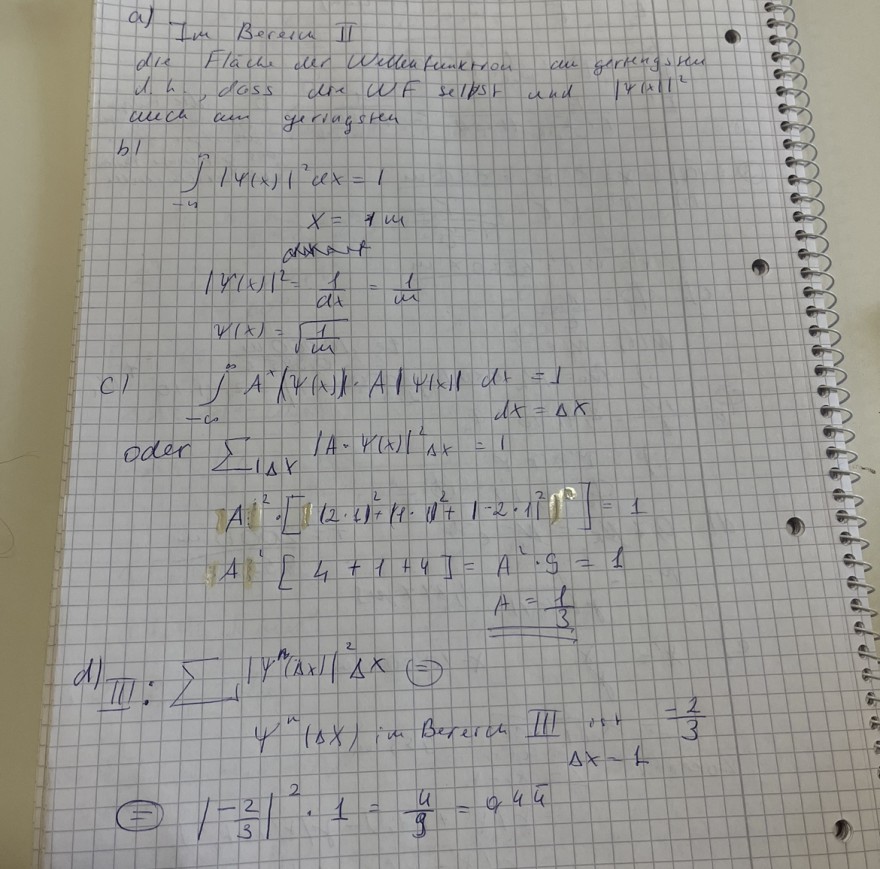 a)
Im Bereich II
die Fläche der Wellenfunktion am geringsten
d.h., dass die WF selbst und |Ψ(x)|²
auch am geringsten
b)
∫_{-∞}^{∞} |Ψ(x)|² dx = 1
x = 1 m
|Ψ(x)|² = 1/dx = 1/m
Ψ(x) = √(1/m)
c) ∫_{-∞}^{∞} A* |Ψ(x)| · A |Ψ(x)| dx = 1
dx = Δx
oder Σ_{Δx} |A · Ψ(x)|² Δx = 1
|A|² · [ (2·1)² + (1·1)² + |-2·1|² ] = 1
|A|² [ 4 + 1 + 4 ] = A² · 9 = 1
A = 1/3
d) III: Σ |Ψⁿ(Δx)|² Δx ⊜
Ψⁿ(Δx) im Bereich III ist -2/3
Δx = 1
⊜ |-2/3|² · 1 = 4/9 = 0,44